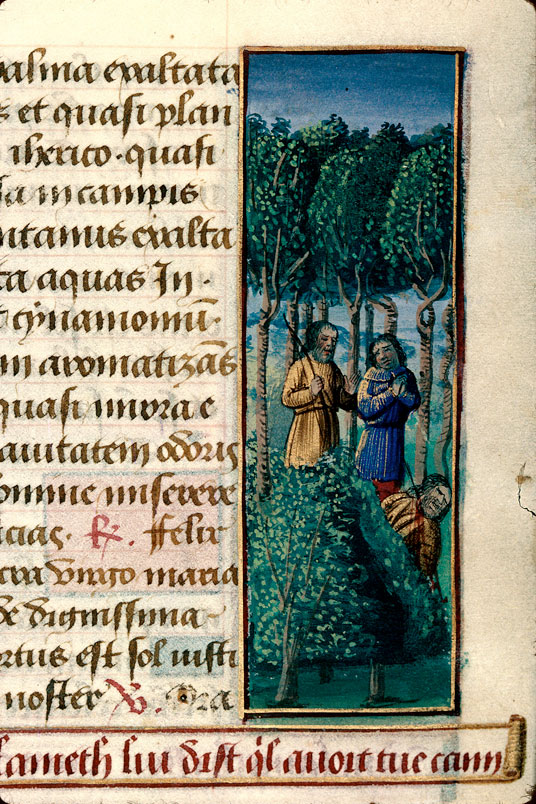 palma exaltata
s et quasi plan
iherico. quasi
la in campis
ntanus exalta
ta aquas In
t cynamomū.
m aromatizās
quasi mirra e
auitatem odoris
omine miserere
cias. ℟. ffelix
cra virgo maria
de dignissima
ortus est sol iusti
noster ℣. Ora
lameth lui dist q̃l auoit tue caym